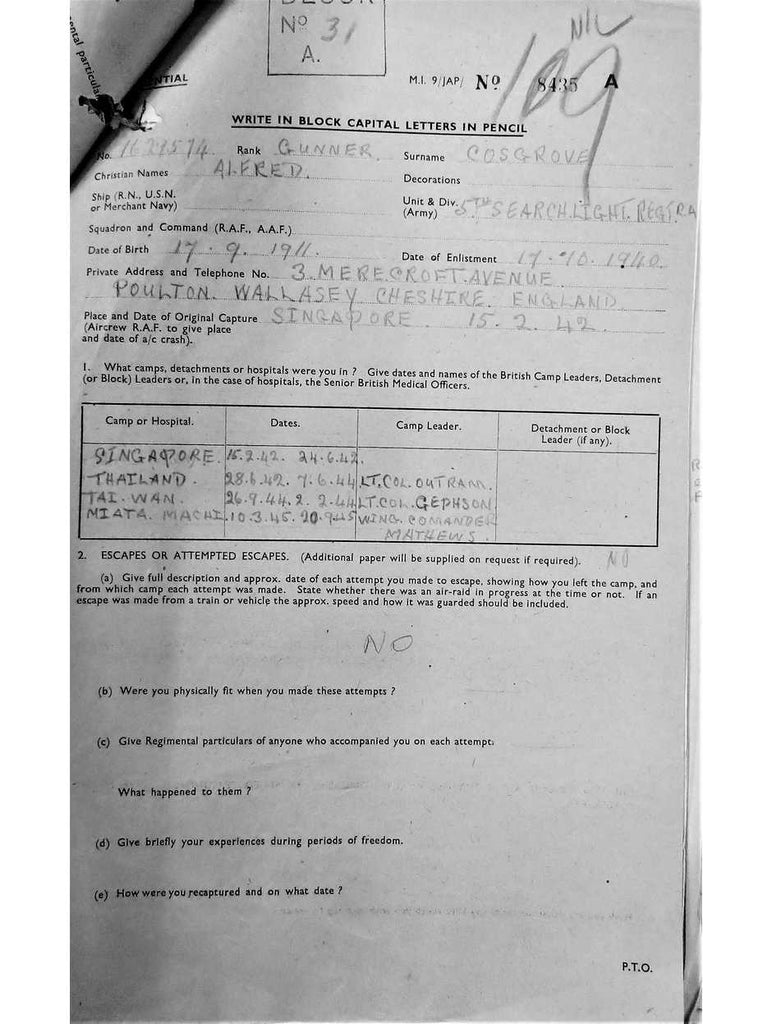 Nº 31
A.
NIL
109
M.I. 9/JAP/ Nº 8435 A
WRITE IN BLOCK CAPITAL LETTERS IN PENCIL
No. Rank GUNNER Surname COSGROVE
Christian Names ALFRED. Decorations
Ship (R.N., U.S.N. or Merchant Navy)
Unit & Div. (Army) 5TH SEARCHLIGHT. REGT RA
Squadron and Command (R.A.F., A.A.F.)
Date of Birth 17. 9. 1911. Date of Enlistment 17. 10. 1940.
Private Address and Telephone No. 3 MERECROFT AVENUE
POULTON. WALLASEY CHESHIRE. ENGLAND
Place and Date of Original Capture SINGAPORE 15. 2. 42.
(Aircrew R.A.F. to give place
and date of a/c crash).
1. What camps, detachments or hospitals were you in ? Give dates and names of the British Camp Leaders, Detachment
(or Block) Leaders or, in the case of hospitals, the Senior British Medical Officers.
Camp or Hospital. Dates. Camp Leader. Detachment or Block
Leader (if any).
SINGAPORE. 15.2.42. 24.6.42.
THAILAND. 28.6.42. 7.6.44 LT.COL.OUTRAM.
TAI. WAN. 26.9.44. 2. 2.44 LT.COL. GEPHSON
MIATA. MACHI. 10.3.45. 20.9.45 WING. COMANDER
MATHEWS.
2. ESCAPES OR ATTEMPTED ESCAPES. (Additional paper will be supplied on request if required). NO
(a) Give full description and approx. date of each attempt you made to escape, showing how you left the camp, and
from which camp each attempt was made. State whether there was an air-raid in progress at the time or not. If an
escape was made from a train or vehicle the approx. speed and how it was guarded should be included.
NO
(b) Were you physically fit when you made these attempts ?
(c) Give Regimental particulars of anyone who accompanied you on each attempt.
What happened to them ?
(d) Give briefly your experiences during periods of freedom.
(e) How were you recaptured and on what date ?
P.T.O.